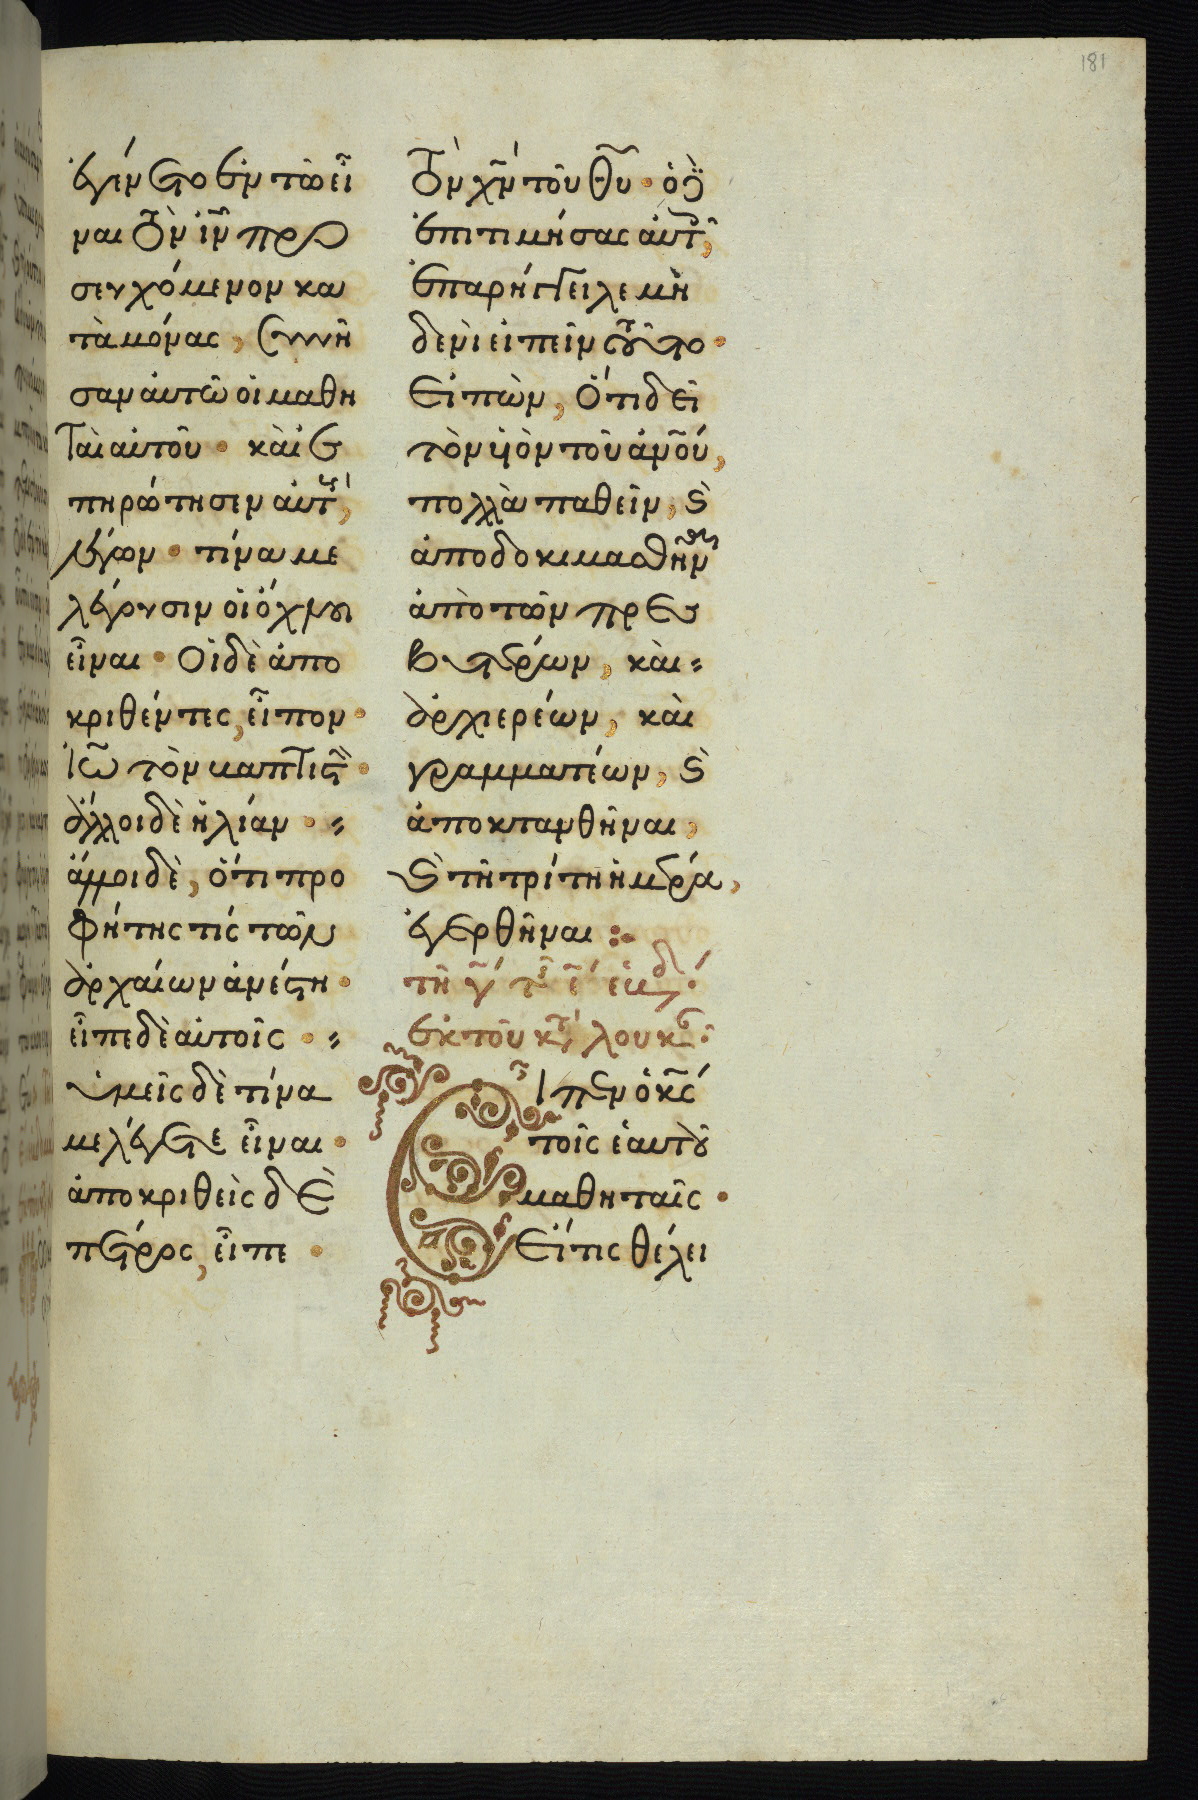 181
ἐγένετο ἐν τῶ εἶ
ναι τὸν ἰν̅ προ
σευχόμενον κα
τὰμόνας, συνῆ
σαν αὐτῶ οἱ μαθη
ταὶ αὐτοῦ · καὶ ἐ
πηρώτησεν αὐτ,
λέγων · τίνα με
λέγουσιν οἱ ὄχλοι
εἶναι · Οἱ δὲ ἀπο
κριθέντες, εἶπον ·
Ἰω̅ τὸν βαπτιστ ·
ἄλλοι δὲ ἠλίαν ·
ἄλλοι δὲ, ὅτι προ
φήτης τίς τῶν
ἀρχαίων ἀνέστη ·
εἶπε δὲ αὐτοῖς ·
ὑμεῖς δὲ τίνα
με λέγετε εἶναι ·
ἀποκριθεὶς δὲ
πέτρος, εἶπε ·
τὸν χν̅ τοῦ θυ̅ · ὁ δὲ
ἐπιτιμήσας αὐτ,
ἐπαρήγγειλε μὴ
δενὶ εἰπεῖν τοῦτο ·
Εἰπὼν, Ὅτι δεῖ
τὸν ὑὸν τοῦ ἀν̅ού,
πολλὰ παθεῖν, ϗ
ἀποδοκιμασθῆν
ἀπὸ τῶν πρεσ
βυτέρων, καὶ
ἀρχιερέων, καὶ
γραμματέων, ϗ
ἀποκτανθῆναι,
ϗ τῆ τρίτη ἡμέρα,
ἐγερθῆναι :
τῆ γ̅ τ ε̅ ἑβδ
ἐκ τοῦ κτ λουκ
Εἶπεν ὁ κς̅
τοῖς ἑαυτοῦ
μαθηταῖς ·
Εἴ τις θέλει